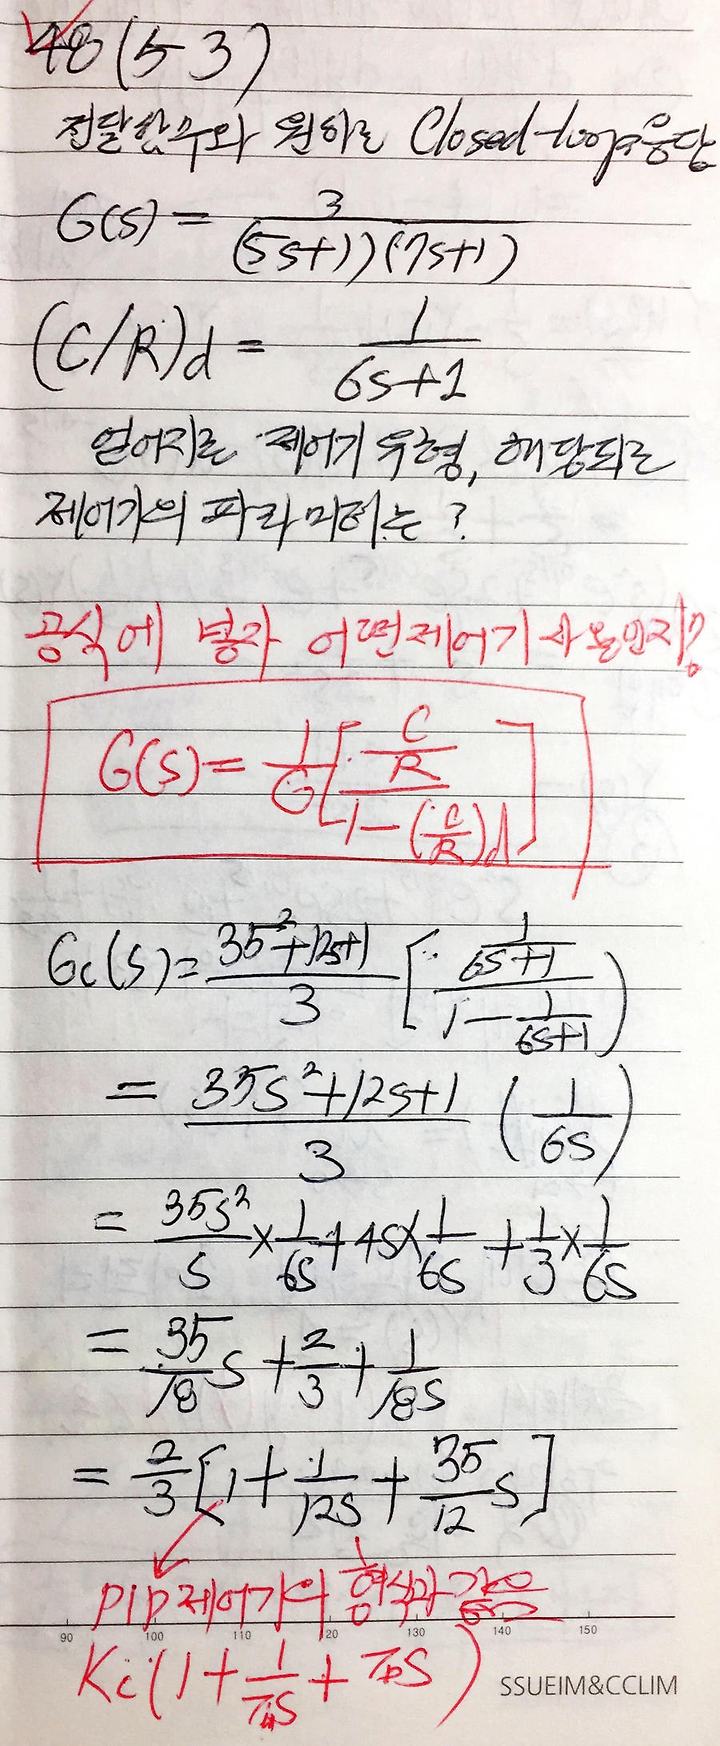 48(5-3)
전달함수와 원하는 Closed-loop응답
G(s) = 3 / (5s+1)(7s+1)
(C/R)d = 1 / 6s+1
얻어지는 제어기 유형, 해당되는
제어기의 파라미터는?
공식에 넣자 어떤제어기 사용인지?
G(s) = 1/G [ C/R / 1-(C/R)d ]
Gc(s) = 35²+12s+1 / 3 [ 1/6s+1 / 1 - 1/6s+1 )
= 35s²+12s+1 / 3 ( 1/6s )
= 35s²/s × 1/6s + 4s × 1/6s + 1/3 × 1/6s
= 35/18 s + 2/3 + 1/18s
= 2/3 [ 1 + 1/12s + 35/12 s ]
PID제어기의 형식과 같음
90 100 110 120 130 140 150
Kc(1 + 1/τIs + τDs)
SSUEIM&CCLIM